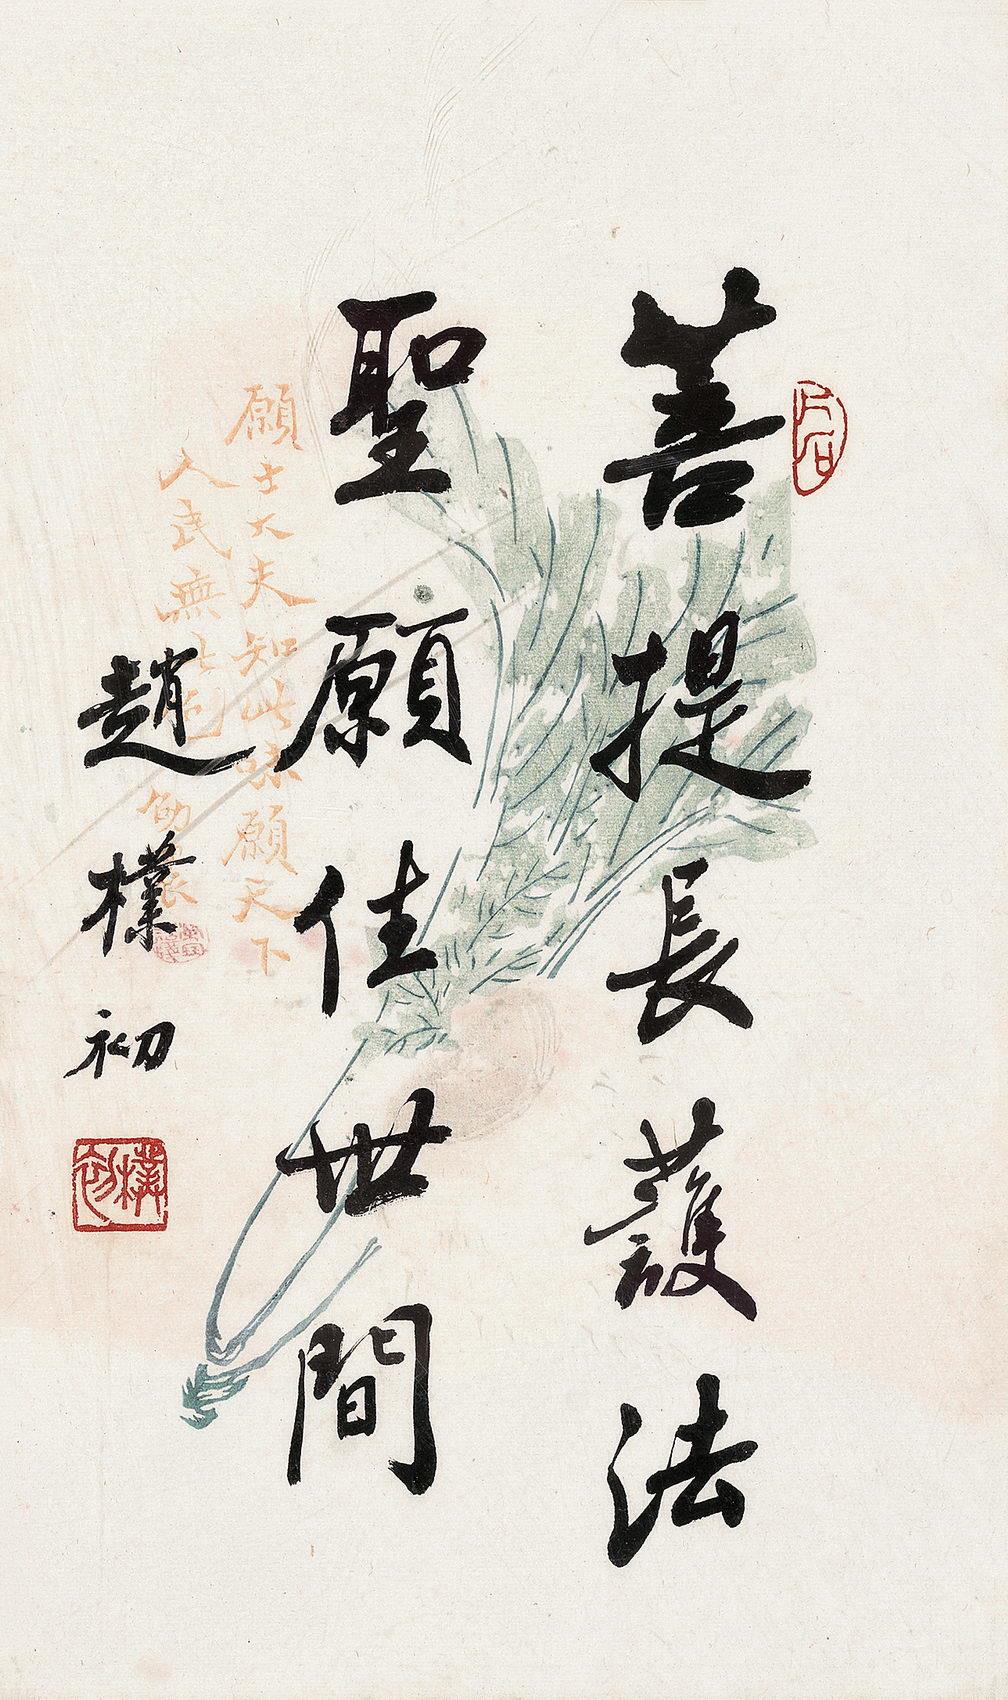 片石
菩提長護法
聖願住世間
趙樸初
樸初
願士大夫知此味願天下
人民無此色